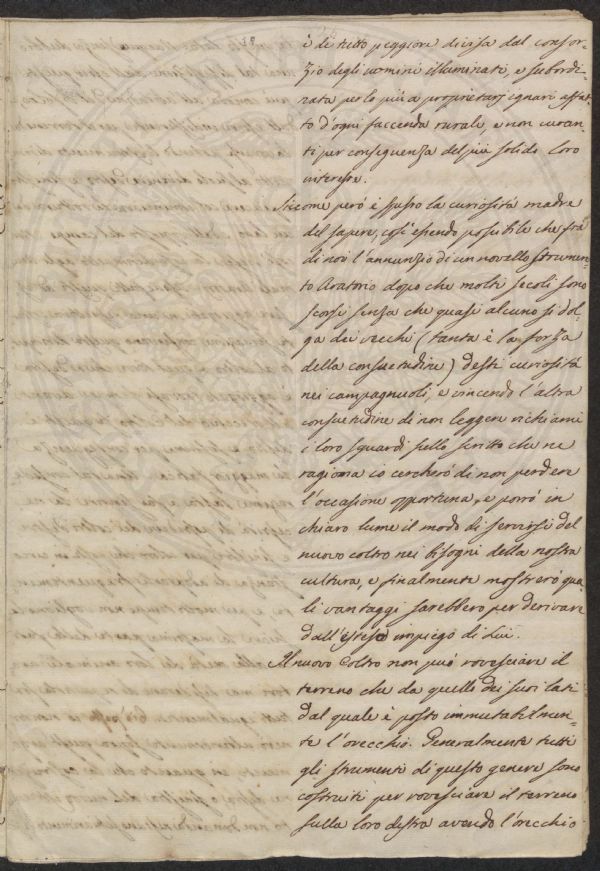 è di tutto peggiore divisa dal consor-
zio degli uomini illuminati, e subordi-
nata per lo più a proprietarj ignari affat-
to d'ogni faccenda rurale, e non curan-
ti per conseguenza del più solido loro
interesse.
Siccome però è spesso la curiosità madre
del sapere, così essendo possibile che frà
di noi l'annunzio di un novello strumen-
to Aratorio dopo che molti secoli sono
scorsi senza che quasi alcuno si dol-
ga dei vecchi (tanta è la forza
della consuetudine) desti curiosità
nei campagnuoli, e vincendo l'altra
consuetudine di non leggere richiami
i loro sguardi sullo scritto che ne
ragiona io cercherò di non perdere
l'occasione opportuna, e porrò in
chiaro lume il modo di servirsi del
nuovo coltro nei bisogni della nostra
cultura, e finalmente mostrerò qua-
li vantaggi sarebbero per derivare
dall'esteso impiego di Lui.
Il nuovo Coltro non può rovesciare il
terreno che da quello dei suoi lati
dal quale è posto immutabilmen-
te l'orecchio. Generalmente tutti
gli strumenti di questo genere sono
costruiti per rovesciare il terreno
sulla loro destra avendo l'orecchio